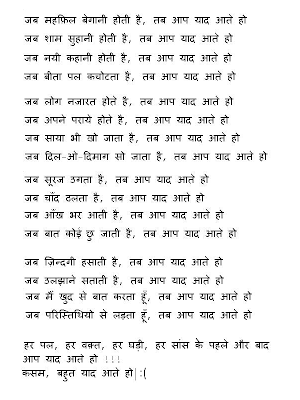 जब महफ़िल बेगानी होती है, तब आप याद आते हो
जब शाम सुहानी होती है, तब आप याद आते हो
जब नयी कहानी होती है, तब आप याद आते हो
जब बीता पल कचोटता है, तब आप याद आते हो
जब लोग नजारत होते है, तब आप याद आते हो
जब अपने पराये होते है, तब आप याद आते हो
जब साया भी खो जाता है, तब आप याद आते हो
जब दिल-ओ-दिमाग सो जाता है, तब आप याद आते हो
जब सूरज उगता है, तब आप याद आते हो
जब चाँद ढलता है, तब आप याद आते हो
जब आँख भर आती है, तब आप याद आते हो
जब बात कोई छु जाती है, तब आप याद आते हो
जब ज़िन्दगी हसाती है, तब आप याद आते हो
जब उलझाने सताती है, तब आप याद आते हो
जब मैं खुद से बात करता हूँ, तब आप याद आते हो
जब परिस्तिथियो से लड़ता हूँ, तब आप याद आते हो
हर पल, हर वक्त, हर घड़ी, हर सांस के पहले और बाद
आप याद आते हो !!!
कसम, बहुत याद आते हो| :(